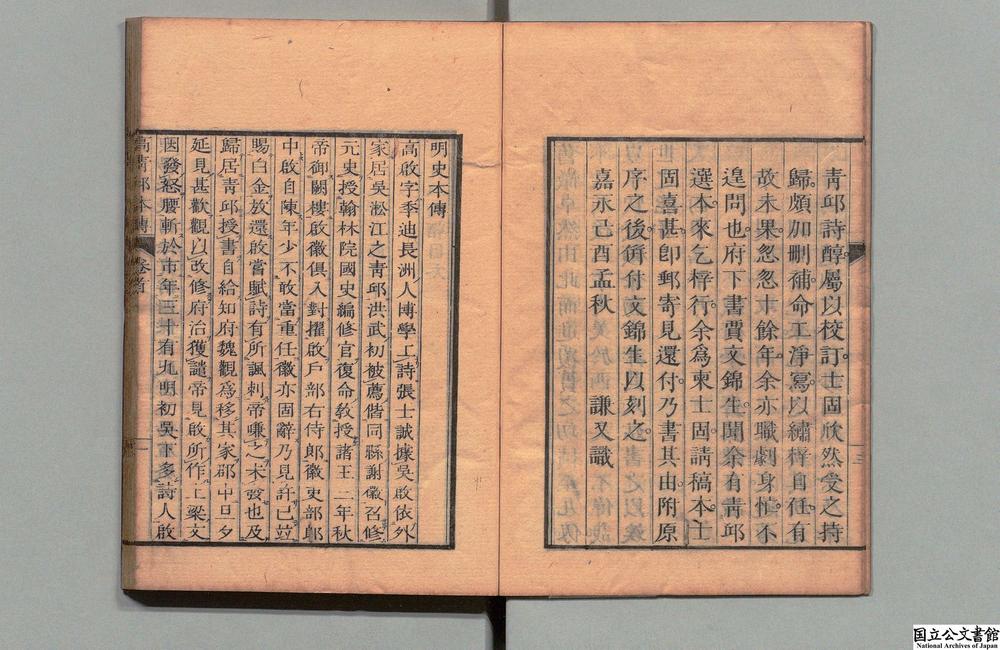 青邱詩醇屬以校訂士固欣然受之持
歸頗加刪補命工淨寫以繡梓自任有
故未果忽忽十餘年余亦職劇身怯不
遑問也府下書賈文錦生聞余有靑邱
選本來乞梓行余爲柬士固請稿本士
固喜甚卽郵寄見還付乃書其由附原
序之後併付文錦生以刻之
嘉永己酉孟秋 謙又識
明史本傳
高啟字季迪長洲人博學工詩張士誠據吳啟依外
家居吳淞江之靑邱洪武初被薦偕同縣謝徽召修
元史授翰林院國史編修官復命敎授諸王三年秋
帝御闕樓啟徽俱入對擢啟戶部右侍郎徽吏部郎
中啟自陳年少不敢當重任徽亦固辭乃見許已竝
賜白金放還啟嘗賦詩有所諷刺帝嗛之未發也及
歸居靑邱授書自給知府魏觀爲移其家郡中旦夕
延見甚歡觀以改修府治獲譴帝見啟所作上梁文
因發怒腰斬於市年三十有九明初吳下多詩人啟
高靑邱本傳 卷首 一
国立公文書館
National Archives of Japan